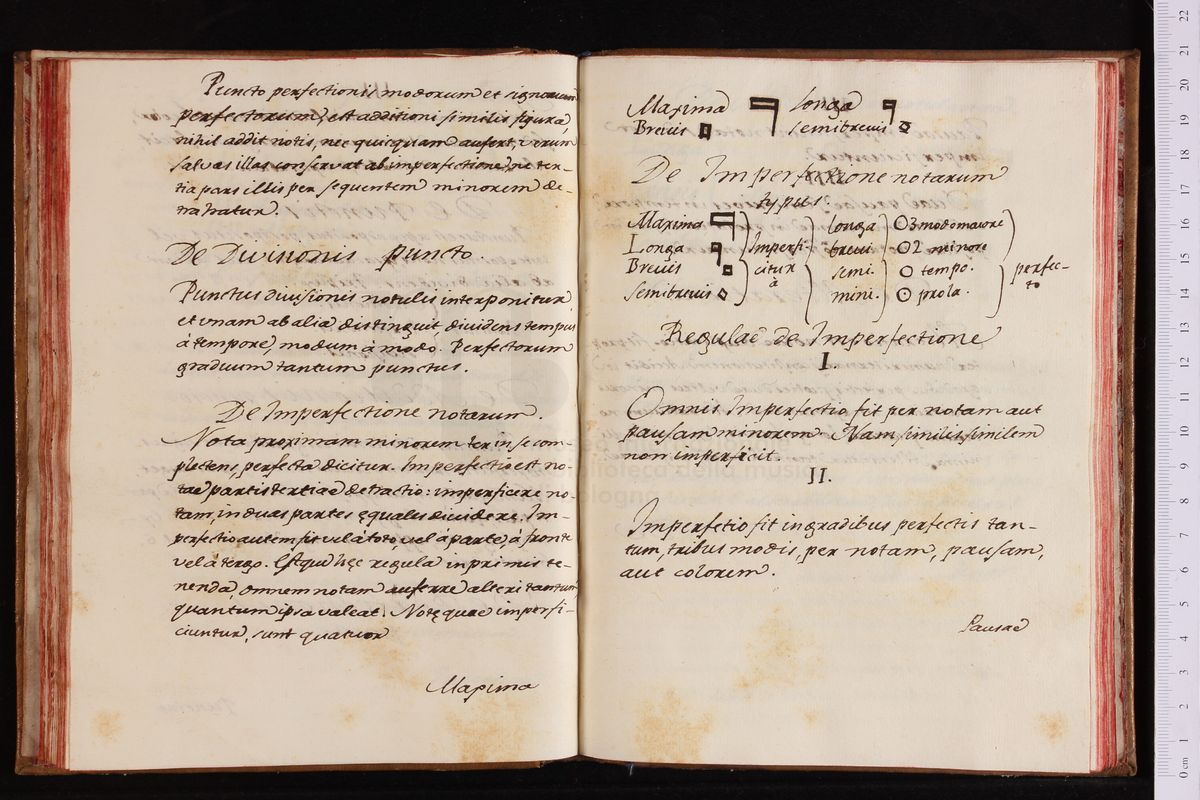 Puncto perfectionis modorum et signorum
perfectorum, est additioni similis figura,
nihil addit notis, nec quicquam aufert, verum
salvas illas conservat ab imperfectione, ne ter-
tia pars illis per sequentem minorem de-
trahatur.
De Divisionis puncto.
Punctus divisionis notulis interponitur,
et vnam ab alia distinguit, dividens tempus
à tempore, modum à modo. Perfectorum
graduum tantum punctus.
De Imperfectione notarum.
Nota proximam minorem ter in se com-
plectens, perfecta dicitur. Imperfectio est no-
tae partis tertiae detractio: imperficere no-
tam, in duas partes ęquales dividere. Im-
perfectio autem fit vel à toto, vel a parte, à fronte
vel à tergo. Estque hęc regula inprimis te-
nenda, omnem notam auferre alteri tantum,
quantum ipsa valeat. Notę quae imperfi-
ciuntur, sunt quatuor
Maxima
Maxima longa
Breuis semibreuis
De Imperfectione notarum
typus.
Maxima longa O3 modo maiori
Longa Imperfi- breui O2 minore
Breuis citur semi. O tempo. perfec-
Semibreuis à mini. ʘ prola. to
Regulae de Imperfectione
I.
Omnis Imperfectio fit per notam aut
pausam minorem. Nam similis similem
non imperficit.
II.
Imperfetio fit in gradibus perfectis tan-
tum, tribus modis, per notam, pausam,
aut colorem.
Pausae
biblioteca della musica
bologna
0 cm 1 2 3 4 5 6 7 8 9 10 11 12 13 14 15 16 17 18 19 20 21 22